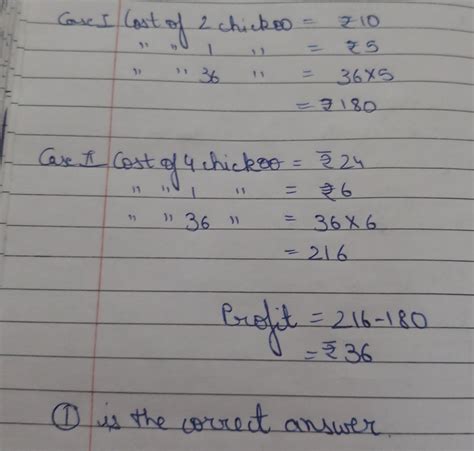 Case I Cost of 2 chickoo = ₹10
" " 1 " = ₹5
" " 36 " = 36×5
= ₹180
Case II Cost of 4 chickoo = ₹24
" " 1 " = ₹6
" " 36 " = 36×6
= 216
Profit = 216-180
= ₹36
① is the correct answer.